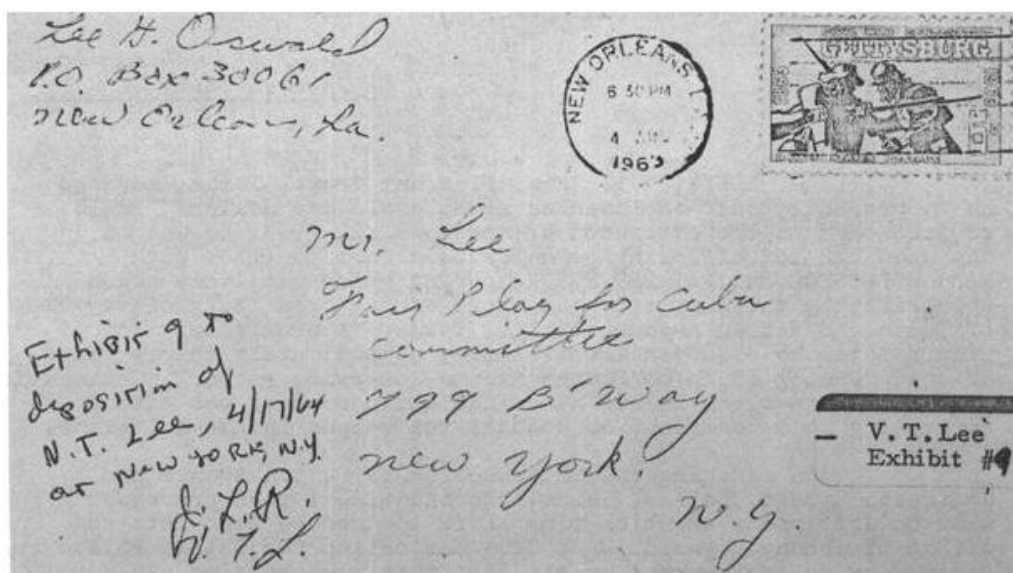 Lee H. Oswald
P.O. Box 30061
New Orleans, La.
NEW ORLEANS
6 30 PM
4
1963
GETTYSBURG
Mr. Lee
Fair Play for Cuba
Committee
799 B'Way
New York.
N.Y.
Exhibit 9 to
deposition of
V.T. Lee, 4/17/64
at New York, N.Y.
J.L.R.
V.T.L.
V.T.Lee
Exhibit #9